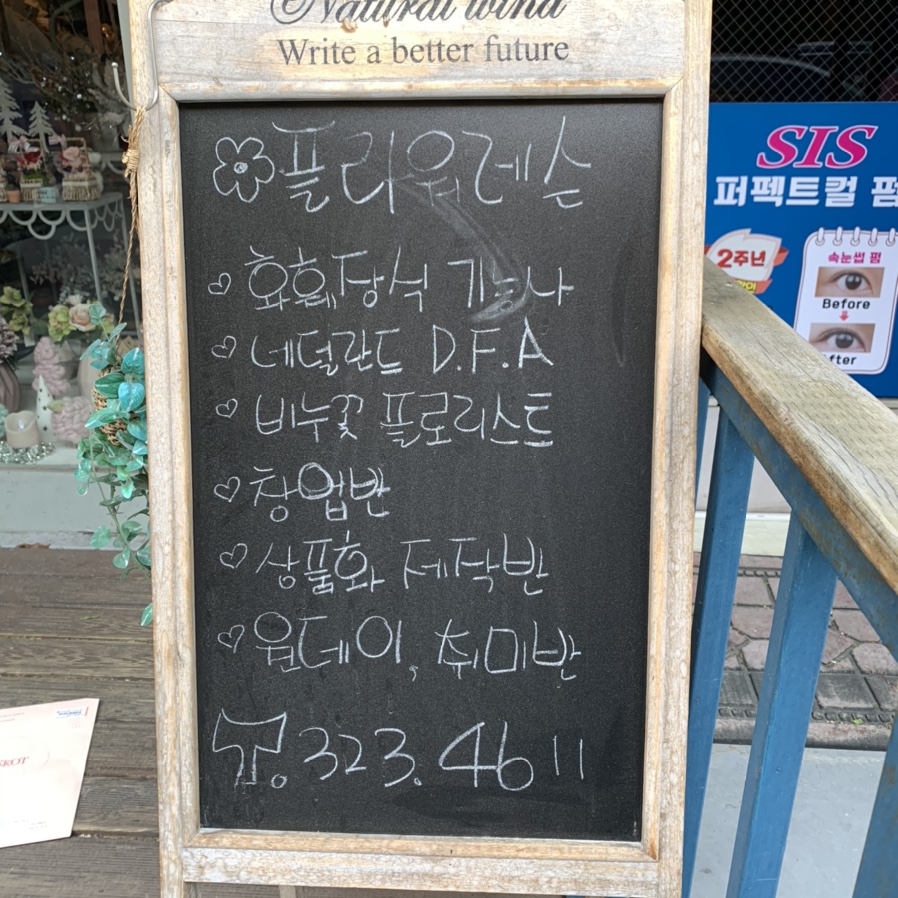 Natural wind
Write a better future
플라워레슨
화훼장식 기능사
네덜란드 D.F.A
비누꽃 플로리스트
창업반
상품화 제작반
원데이, 취미반
T. 323. 4611
SIS
퍼펙트컬 펌
2주년
속눈썹 펌
Before
After